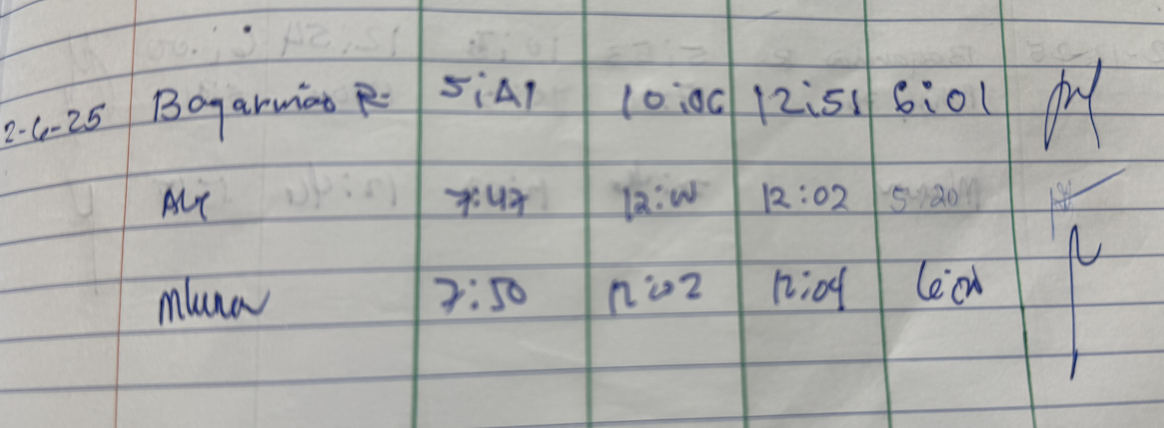 2-6-25 Bogarmiao R. 5:41 10:06 12:51 6:01
Aly 7:47 12:00 12:02 5:20
7:50 12:02 12:04 6:00